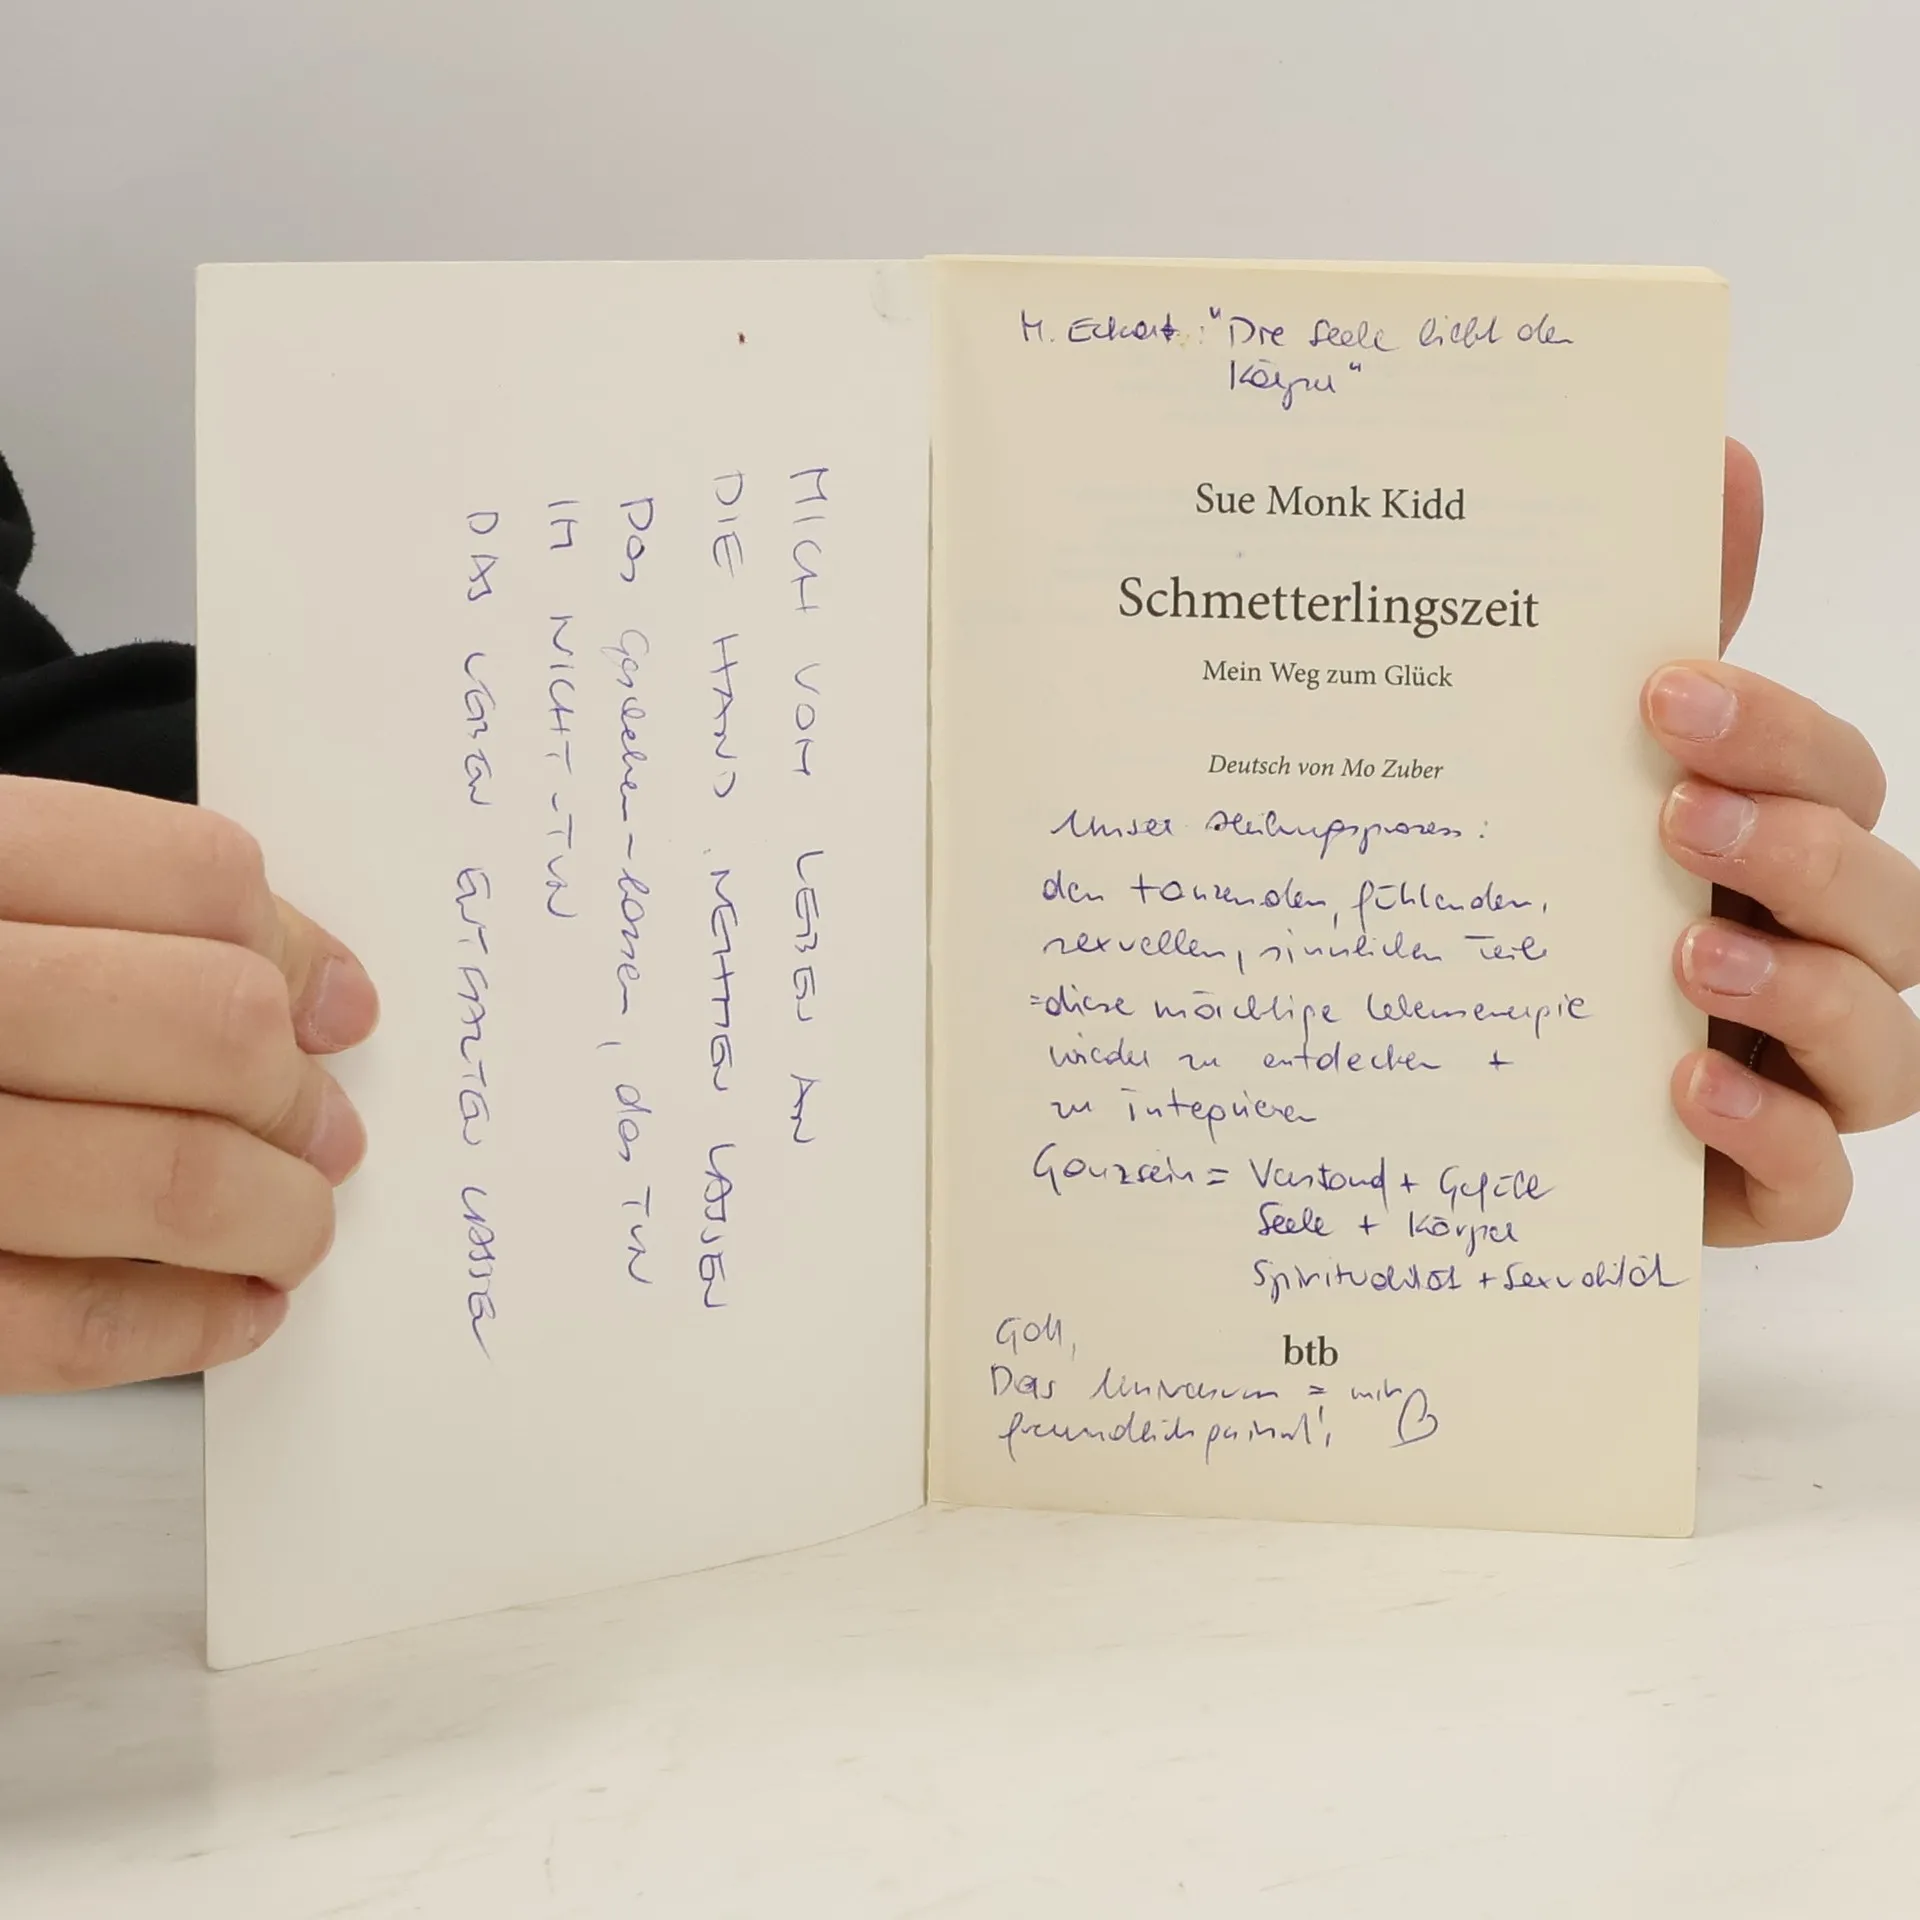 MICH VOM LEBEN AN
DIE HAND NEHMEN LASSEN
Das Geschehen-lassen, das TUN
IM NICHT-TUN
DAS LEBEN ENTFALTEN LASSEN
M. Eckart: "Die Seele liebt den
Körper"
Sue Monk Kidd
Schmetterlingszeit
Mein Weg zum Glück
Deutsch von Mo Zuber
Unser Heilungsprozess:
den tanzenden, fühlenden,
sexuellen, sinnlichen Teile
=diese mächtige Lebensenergie
wieder zu entdecken +
zu integrieren
Ganzsein = Verstand + Gefühle
Seele + Körper
Spiritualität + Sexualität
Gott,
btb
Das Universum = mir
freundlich gesinnt!